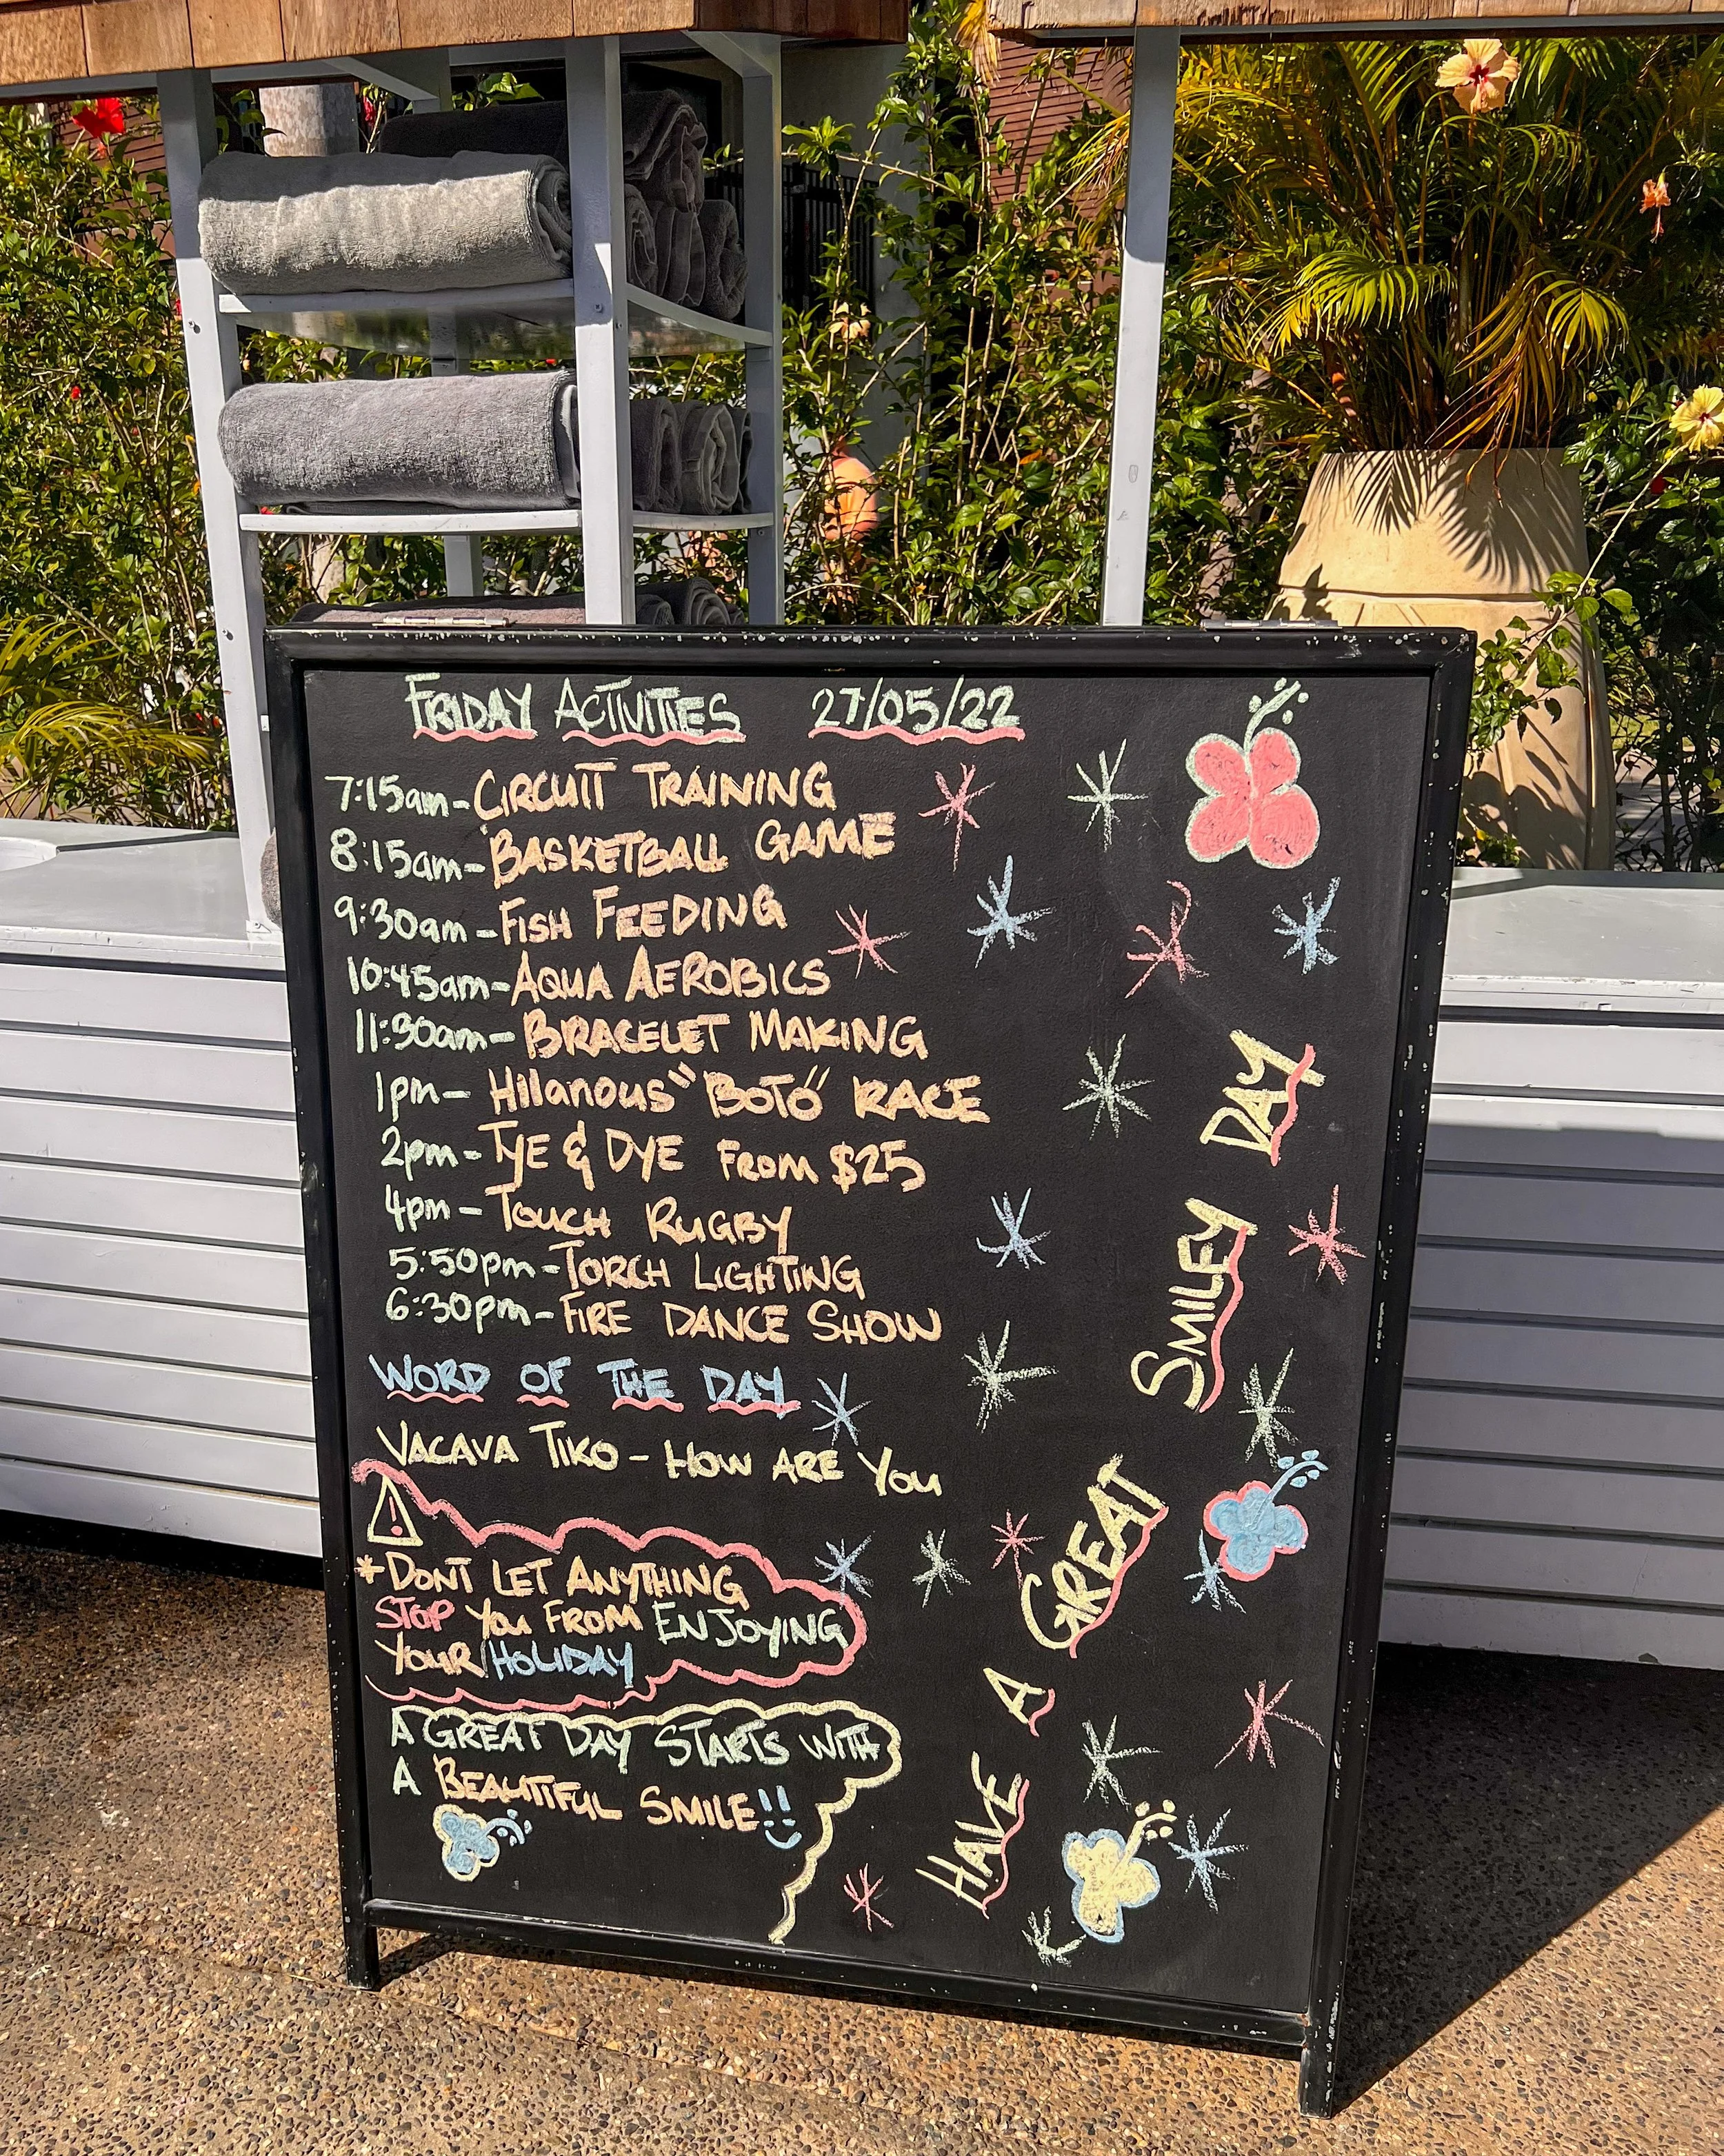 FRIDAY ACTIVITIES 27/05/22
7:15am - CIRCUIT TRAINING
8:15am - BASKETBALL GAME
9:30am - FISH FEEDING
10:45am - AQUA AEROBICS
11:30am - BRACELET MAKING
1pm - Hilarious "BOTO" RACE
2pm - TYE & DYE FROM $25
4pm - TOUCH RUGBY
5:50pm - TORCH LIGHTING
6:30pm - FIRE DANCE SHOW
WORD OF THE DAY
VACAVA TIKO - HOW ARE YOU
*DONT LET ANYTHING
STOP YOU FROM ENJOYING
YOUR HOLIDAY
A GREAT DAY STARTS WITH
A BEAUTIFUL SMILE!!
HAVE A GREAT SMILEY DAY